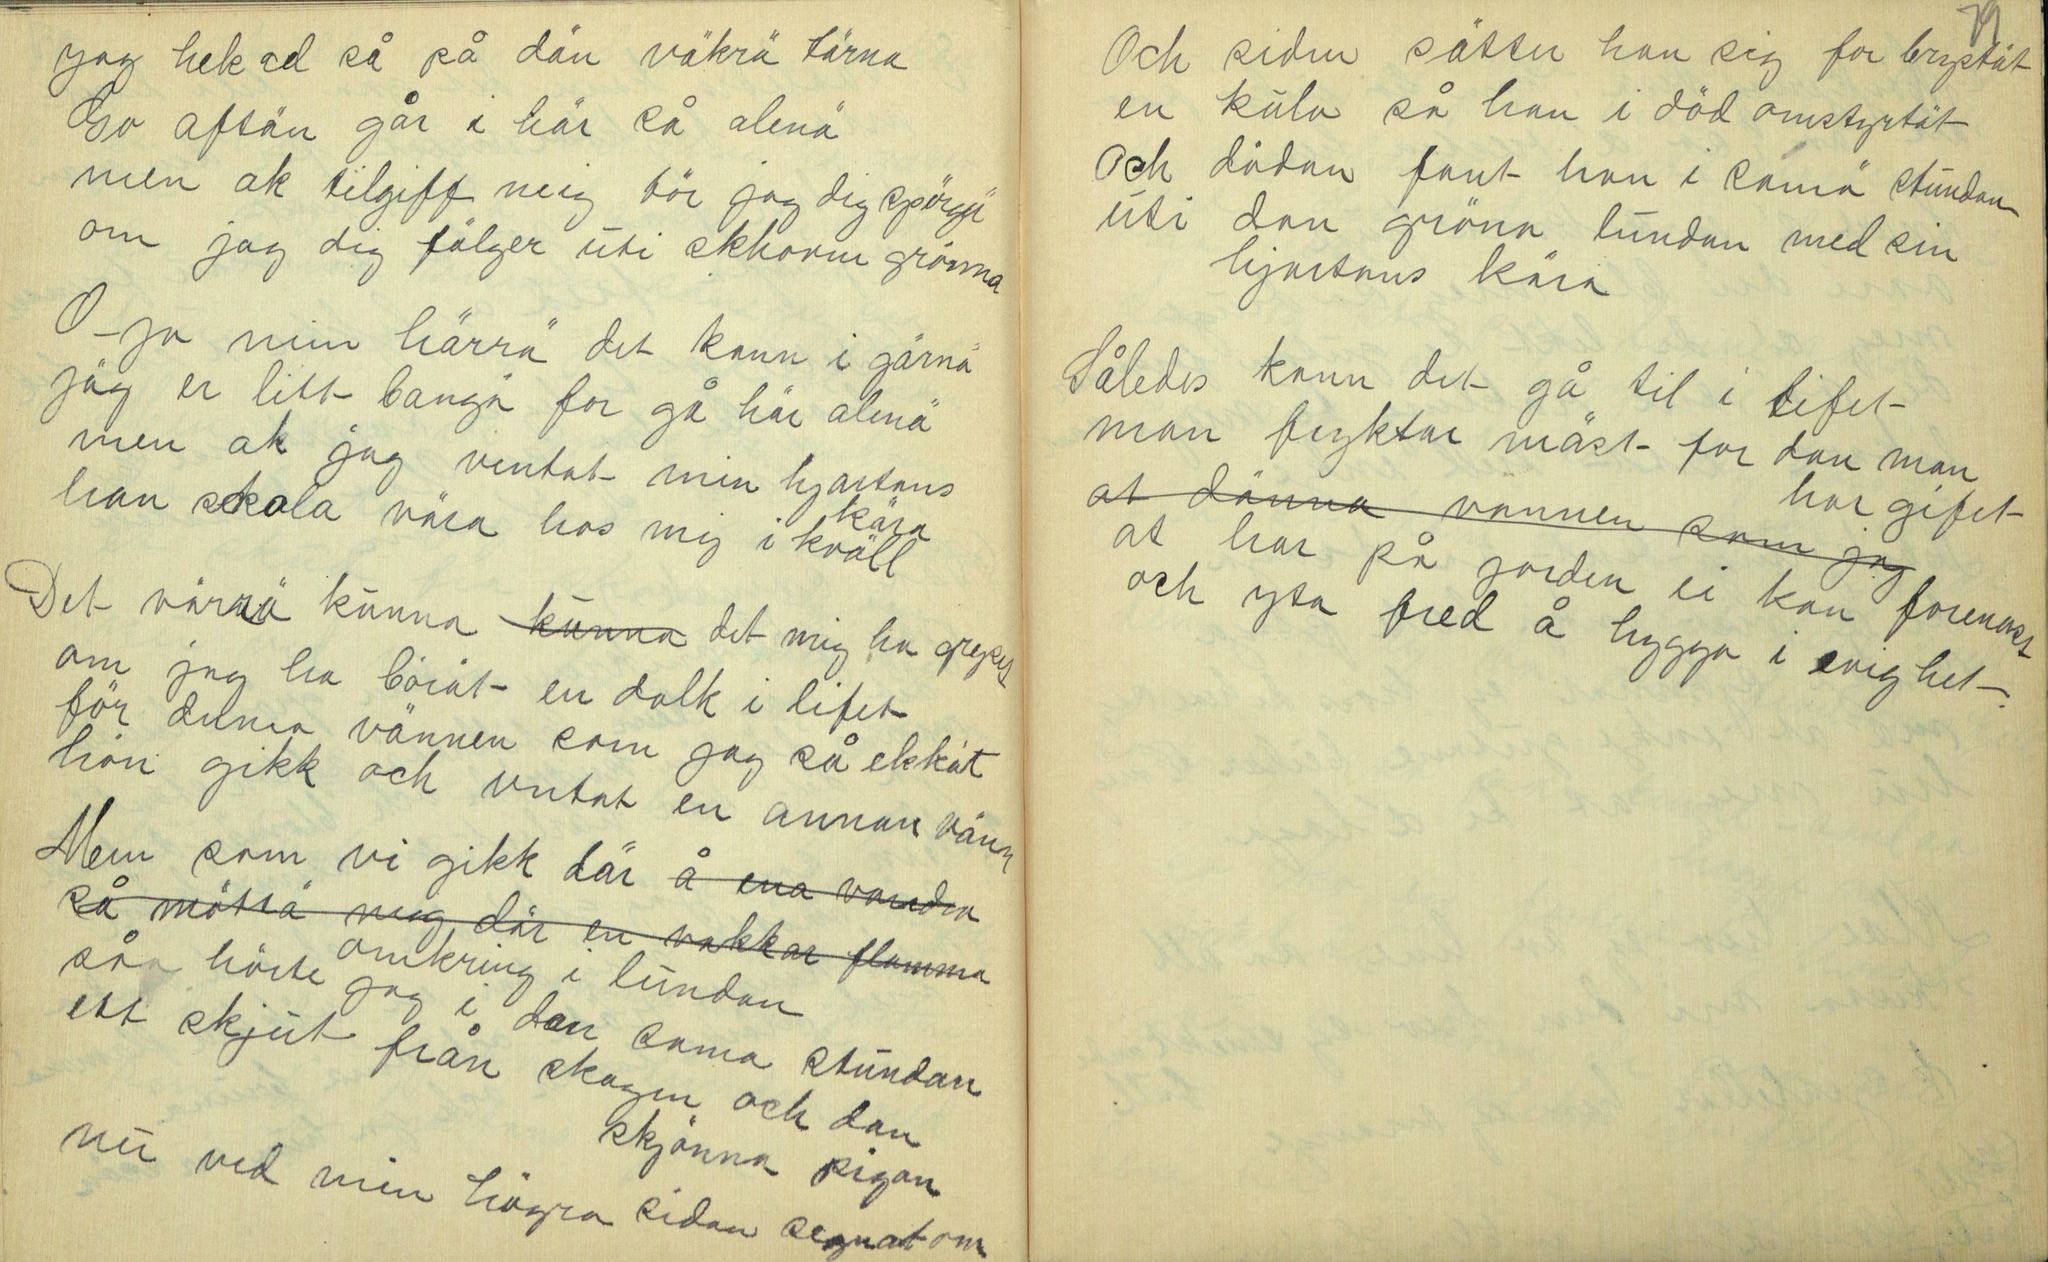 jag helsad så på dän väkrä tärna
Go aftän går i här så alenä
men ak tilgiff meig tör jag dig spörgä
om jag dig fölger uti skhoven grönna
O-ja min härrä det kann i gärnä
jäg er litt bangä for gå här alenä
men ak jag ventat min hjartans
kära
han skola våra hos mig i kväll
Det värrä kunna kunna det mig ha grepet
om jag ha börät en dolk i lifet
för denna vännen som jag så elskät
hon gikk och ventat en annan vänn
Men som vi gikk där å ena vandra
så möttä meg där en vakkar flamma
omkring i lundan
såa hörte jag i dan sama stundan
ett skjut från skogen och dan
skjönna pigan
nu ved min högra sidan segnat om
79
Och siden sätter han sig for brystät
en kula så han i död omstyrtät
Och dödan fant han i samä stundan
uti dan gröna lundan med sin
hjartans kära
Således kann det gå til i lifet
man fryktar mäst for dan man
har gifet
at dänna vannen som jag
at har på jorden ei kan forenast
och yta fred å hygga i evighet.